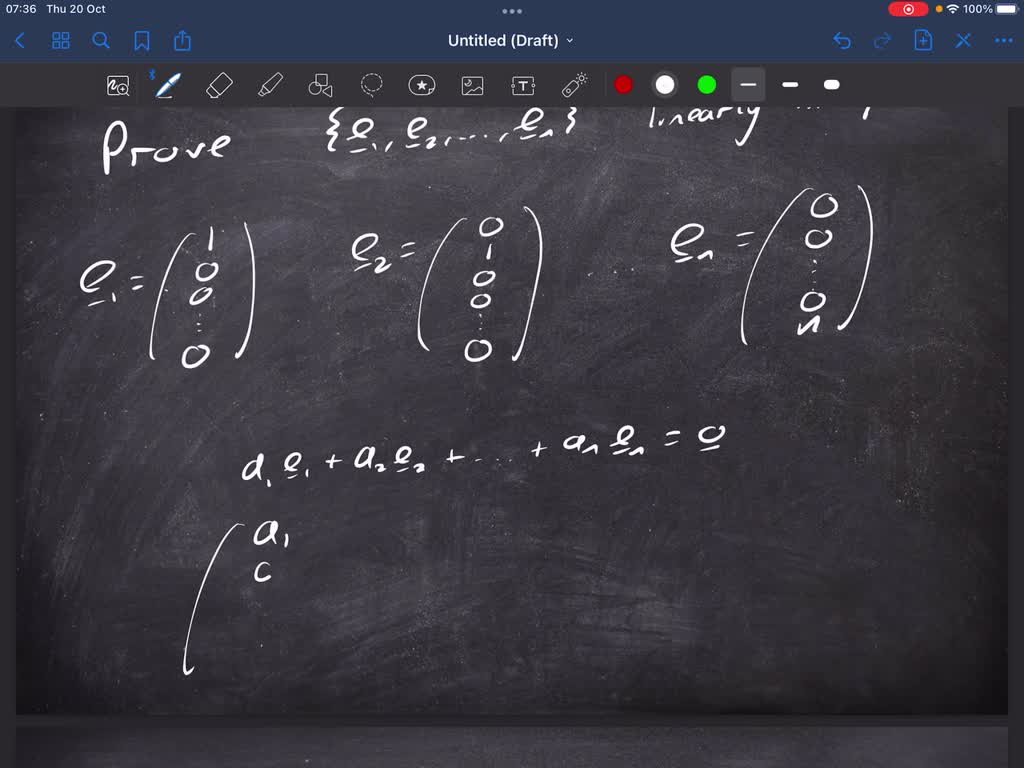 07:36 Thu 20 Oct
100%
Untitled (Draft)
T
Prove {e₁, e₂, ..., eₙ} linearly
e₁ = (1 0 0 ⋮ 0) e₂ = (0 1 0 0 ⋮ 0) eₙ = (0 0 ⋮ 0 n)
a₁e₁ + a₂e₂ + ... + aₙeₙ = 0
( a₁
c